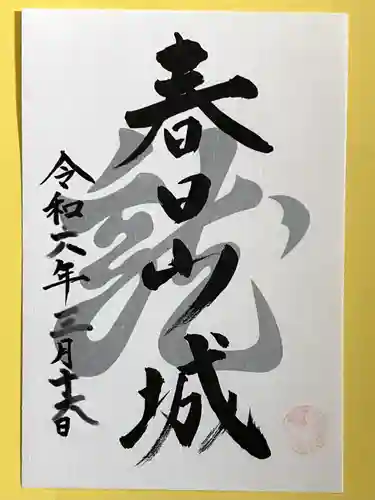 春日山城
令和六年三月十六日